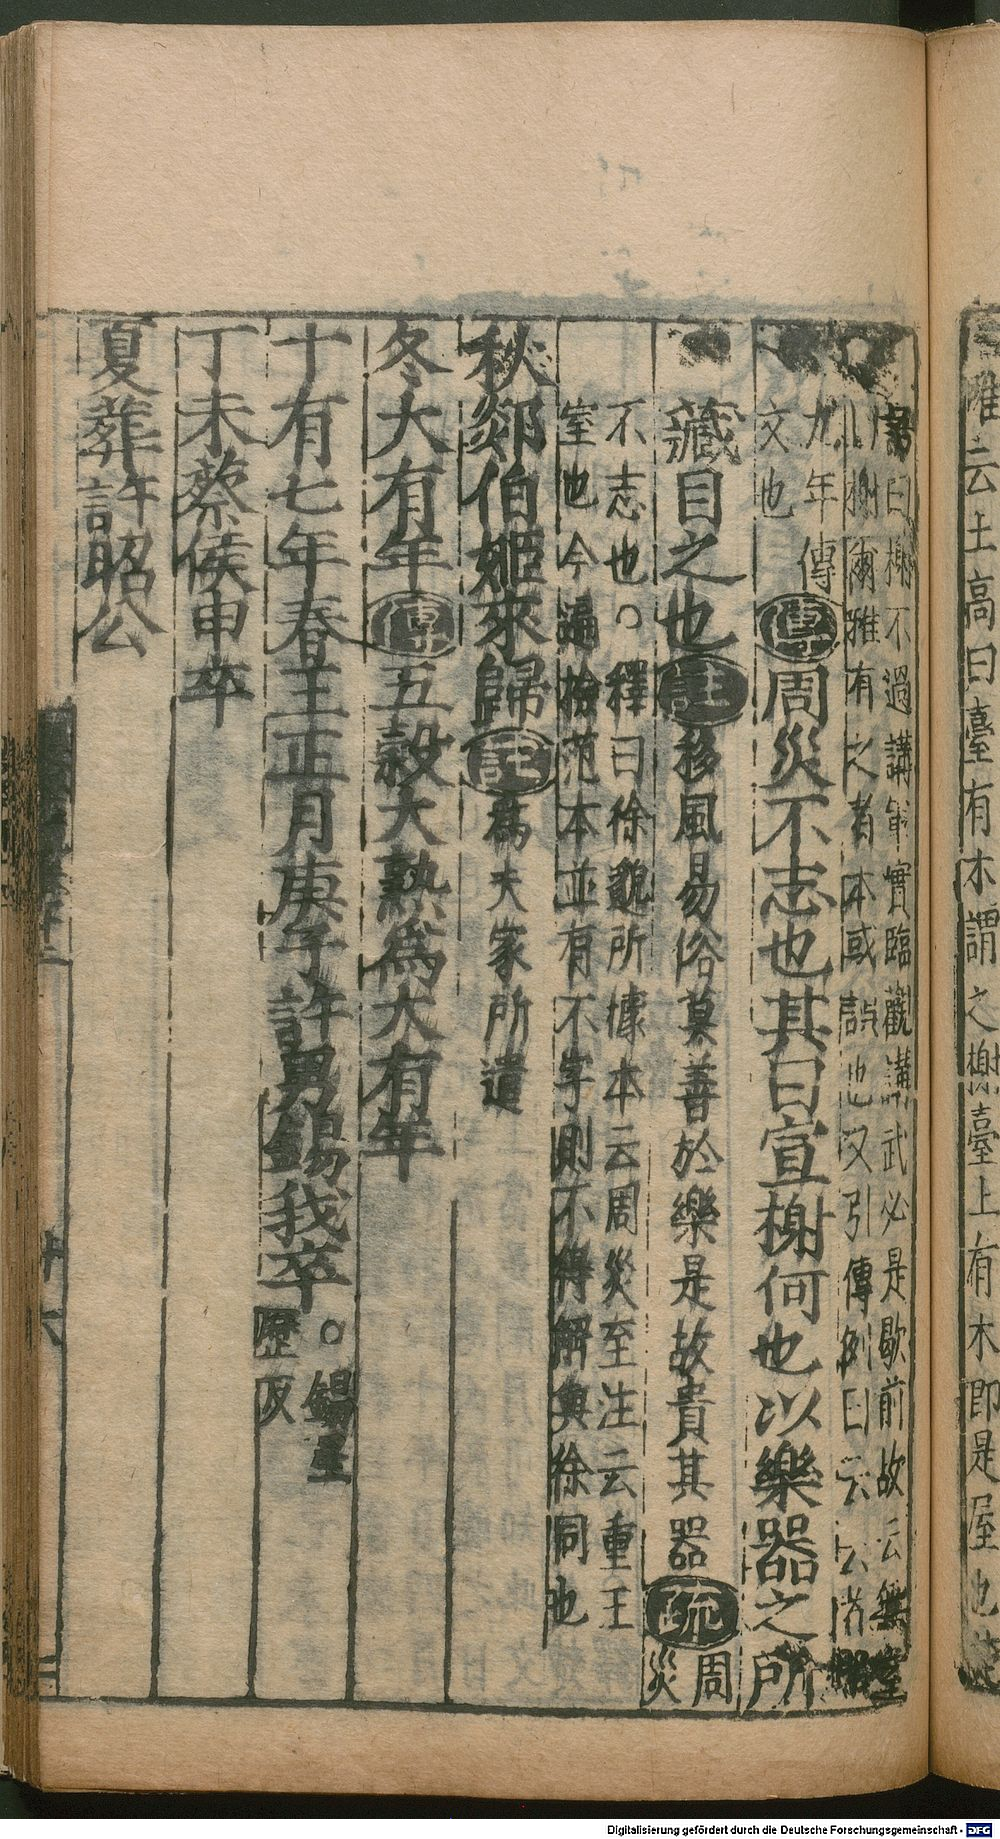 唯云土高曰臺有木謂之榭臺上有木即是屋也
書曰榭不過講軍實臨觀講武必是歇前故云無室
曰榭爾雅有之者本或誤也又引傳例曰云云者
九年傳
文也
傳周災不志也其曰宣榭何也以樂器之所
藏目之也註移風易俗莫善於樂是故貴其器疏周
災
不志也○釋曰徐邈所據本云周災至注云重王
室也今遍撿范本並有不字則不得解與徐同也
秋郯伯姬來歸註為夫家所遣
冬大有年傳五穀大熟為大有年
十有七年春王正月庚子許男錫我卒○錫星
歷反
丁未蔡侯申卒
夏葬許昭公
十六
Digitalisierung gefördert durch die Deutsche Forschungsgemeinschaft - DFG